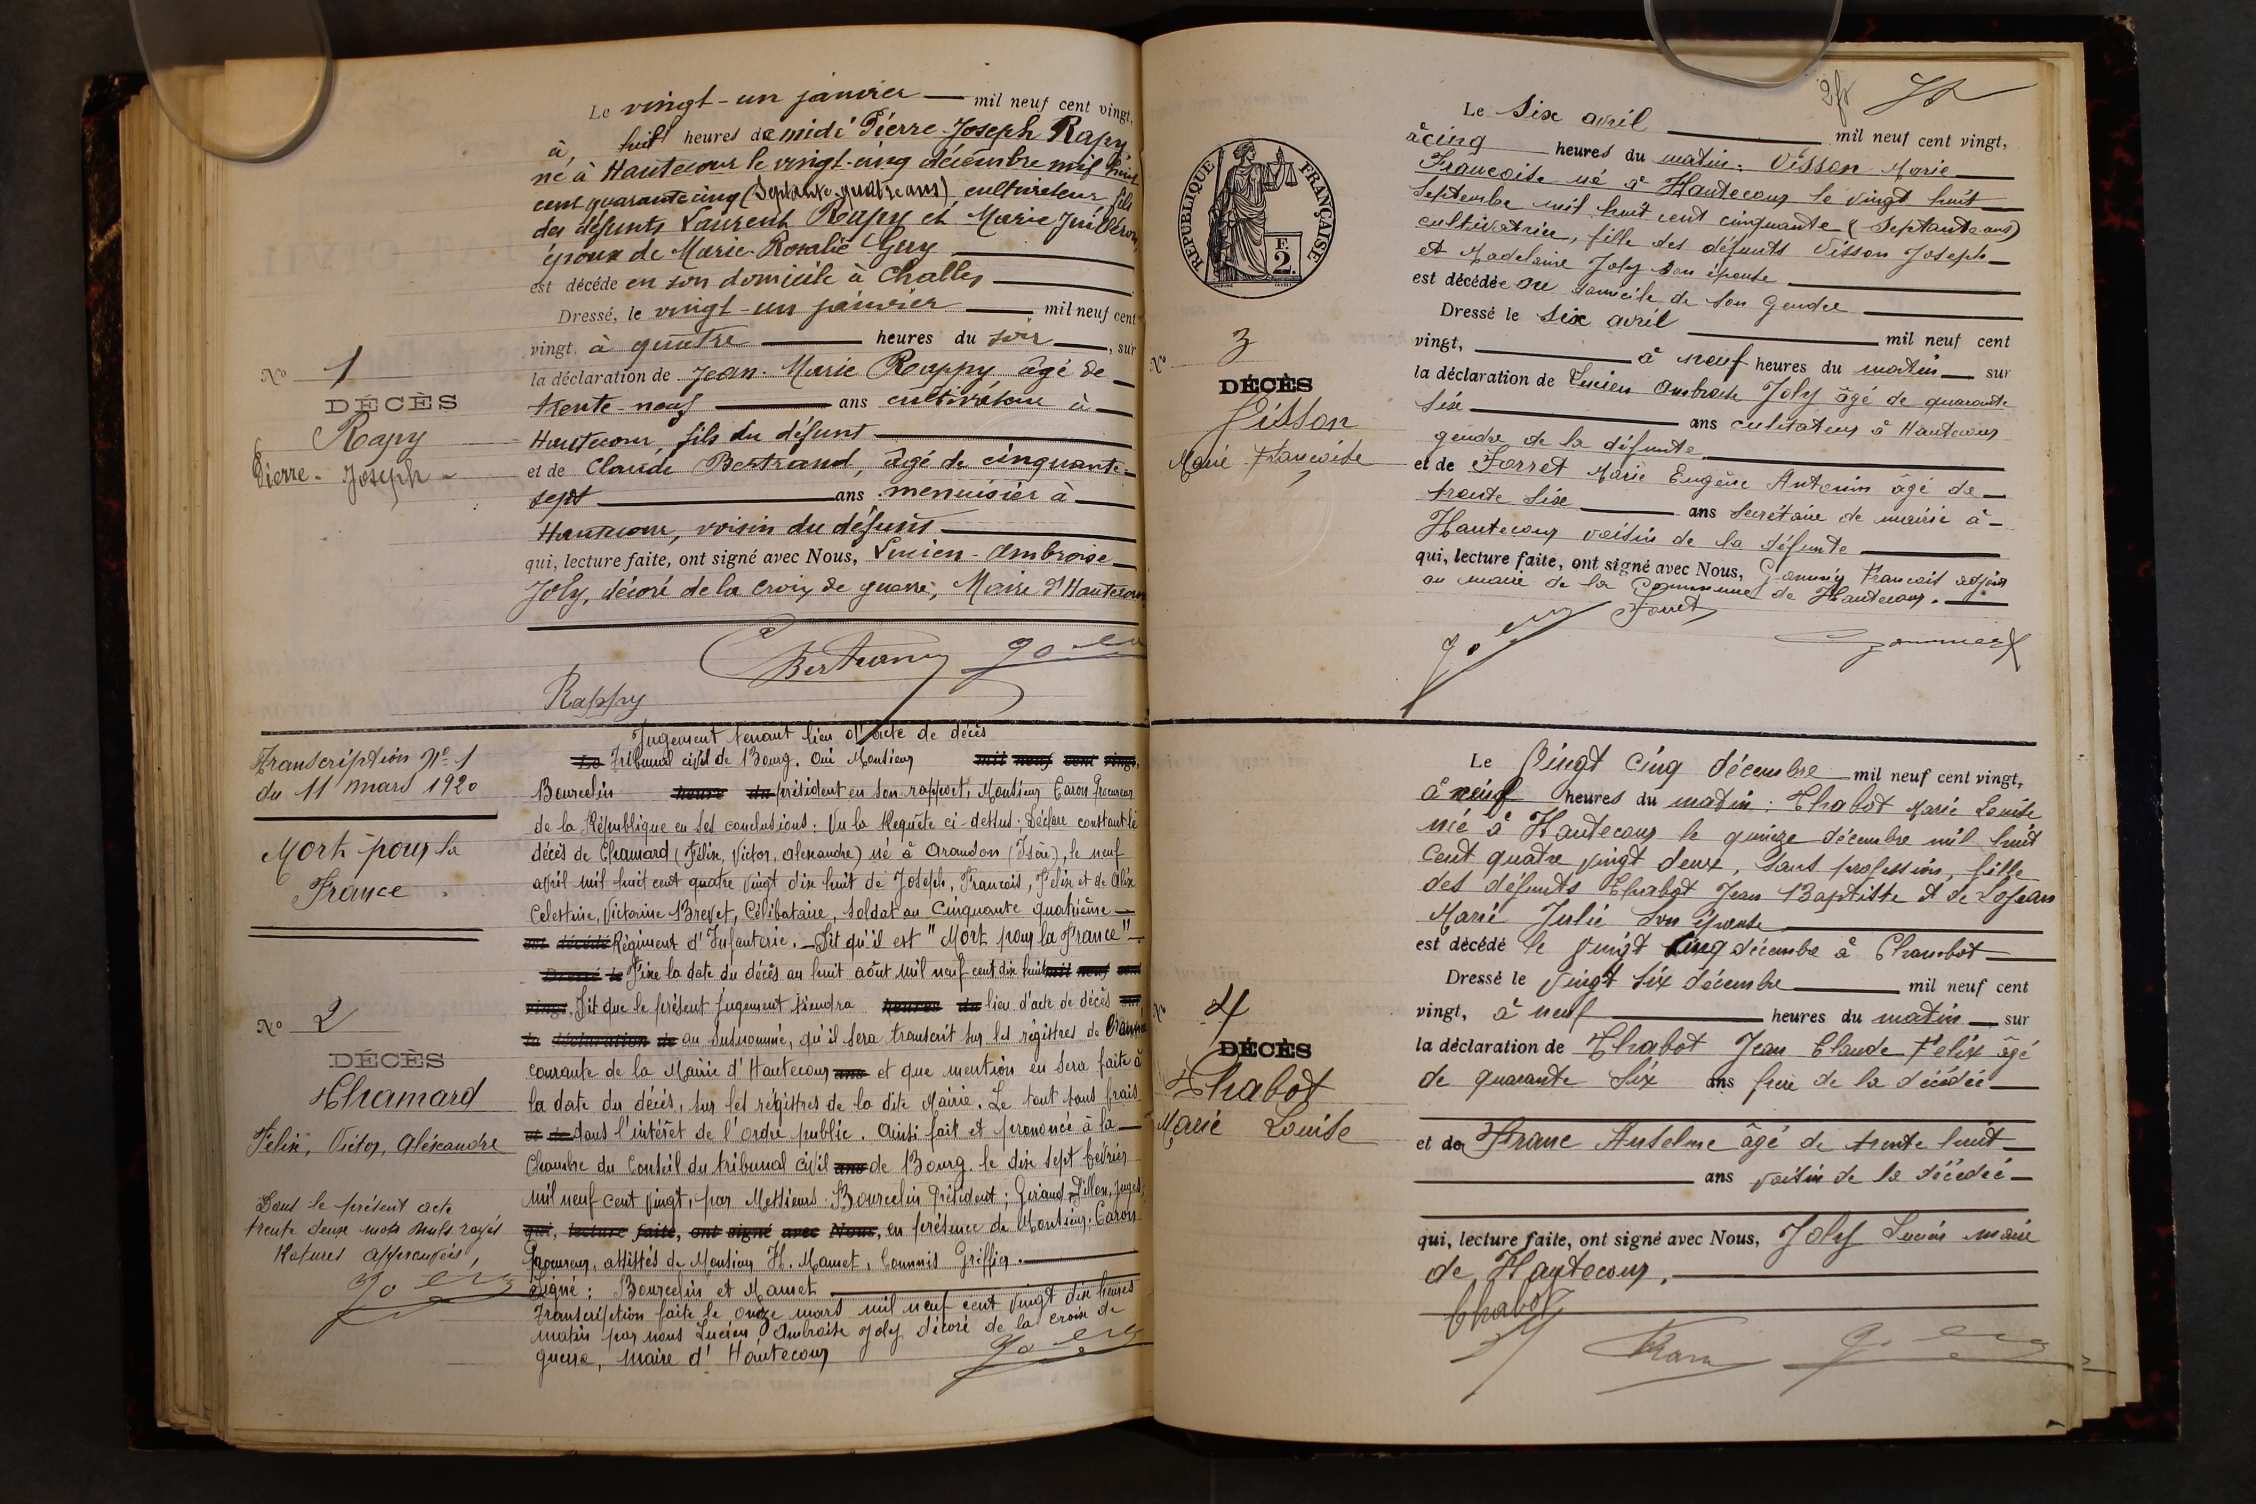 Le vingt-un janvier — mil neuf cent vingt,
à, huit heures de midi Pierre-Joseph Rapy
né à Hautecour le vingt-cinq décembre mil huit
cent quarante cinq (Septante-quatre ans), cultivateur, fils
des défunts Laurent Rapy et Marie Juilleron,
époux de Marie-Rosalie Guy
est décédé en son domicile à Challes
Dressé, le vingt-un janvier — mil neuf cent
vingt, à quatre — heures du soir —, sur
la déclaration de Jean-Marie Rappy âgé de
trente-neuf — ans cultivateur à
Hautecour, fils du défunt
et de Claude Bertrand, âgé de cinquante-
sept — ans menuisier à
Hautecour, voisin du défunt
qui, lecture faite, ont signé avec Nous, Lucien-Ambroise
Joly, décoré de la croix de guerre, Maire d'Hautecour
Bertrand Joly
Rappy
No 1
DÉCÈS
Rapy
Pierre-Joseph
Transcription No 1
du 11 mars 1920
Mort pour la
France
No 2
DÉCÈS
Chamard
Félix, Victor, Alexandre
Dans le présent acte
trente deux mots nuls rayés
Ratures approuvées,
Joly
Jugement tenant lieu d'acte de décès
Le Tribunal civil de Bourg. Oui Monsieur mil neuf cent vingt,
Bourcelin heure du président en son rapport, Monsieur Caron Procureur
de la République en ses conclusions: Vu la Requête ci-dessus; Déclare constant le
décès de Chamard (Félix, Victor, Alexandre) né à Arandon (Isère), le neuf
avril mil huit cent quatre vingt dix huit de Joseph, François, Félix et de Alix
Celestine, Victorine Brevet, Célibataire, Soldat au Cinquante quatrième
est décédé Régiment d'Infanterie. — Dit qu'il est "Mort pour la France"
Dressé le Fixe la date du décès au huit août mil neuf cent dix huit mil neuf cent
vingt, Dit que le présent jugement tiendra heures du lieu d'acte de décès sur
la déclaration de au susnommé, qu'il sera transcrit sur les régistres de l'année
courante de la Mairie d'Hautecour ans et que mention en sera faite à
la date du décès, sur les régistres de la dite Mairie. Le tout sans frais
et de dans l'intérêt de l'ordre public. Ainsi fait et prononcé à la
Chambre du Conseil du tribunal civil ans de Bourg. le dix sept février
mil neuf cent vingt, par Messieurs Bourcelin Président; Giraud, Dillon, juges,
qui, lecture faite, ont signé avec Nous, en présence de Monsieur Caron
Procureur, assistés de Monsieur H. Mamet, Commis Greffier.
Signé: Bourcelin et Mamet
Transcription faite le onze mars mil neuf cent vingt dix heures
matin par nous Lucien Ambroise Joly décoré de la croix de
guerre, maire d'Hautecour
Joly
2
RÉPUBLIQUE FRANÇAISE
F.
2.
No 3
DÉCÈS
Visson
Marie Françoise
Le Six avril — mil neuf cent vingt,
à cinq heures du matin: Visson Marie
Françoise né à Hautecour le vingt huit
Septembre mil huit cent cinquante (Septante ans)
cultivatrice, fille des défunts Visson Joseph
et Madelaine Joly son épouse
est décédée au domicile de son gendre
Dressé le Six avril — mil neuf cent
vingt, — à neuf heures du matin — sur
la déclaration de Lucien Ambroise Joly âgé de quarante
six — ans cultivateur à Hautecour
gendre de la défunte
et de Forret Marie Eugène Antonin âgé de
trente six — ans Secrétaire de mairie à
Hautecour voisin de la défunte
qui, lecture faite, ont signé avec Nous, François adjoint
au maire de la Commune de Hautecour.
Joly Forret
No 4
DÉCÈS
Chabot
Marie Louise
Le Vingt cinq décembre — mil neuf cent vingt,
à neuf heures du matin: Chabot Marie Louise
née à Hautecour le quinze décembre mil huit
cent quatre vingt deux, sans profession, fille
des défunts Chabot Jean Baptiste et de Lojean
Marie Julie son épouse
est décédé le vingt cinq décembre à Chambot
Dressé le vingt six décembre — mil neuf cent
vingt, à neuf — heures du matin — sur
la déclaration de Chabot Jean Claude Félix âgé
de quarante six ans frère de la décédée
et de Franc Anselme âgé de trente huit
— ans voisin de la décédée
qui, lecture faite, ont signé avec Nous, Joly Lucien maire
de Hautecour.
Chabot
Franc Joly